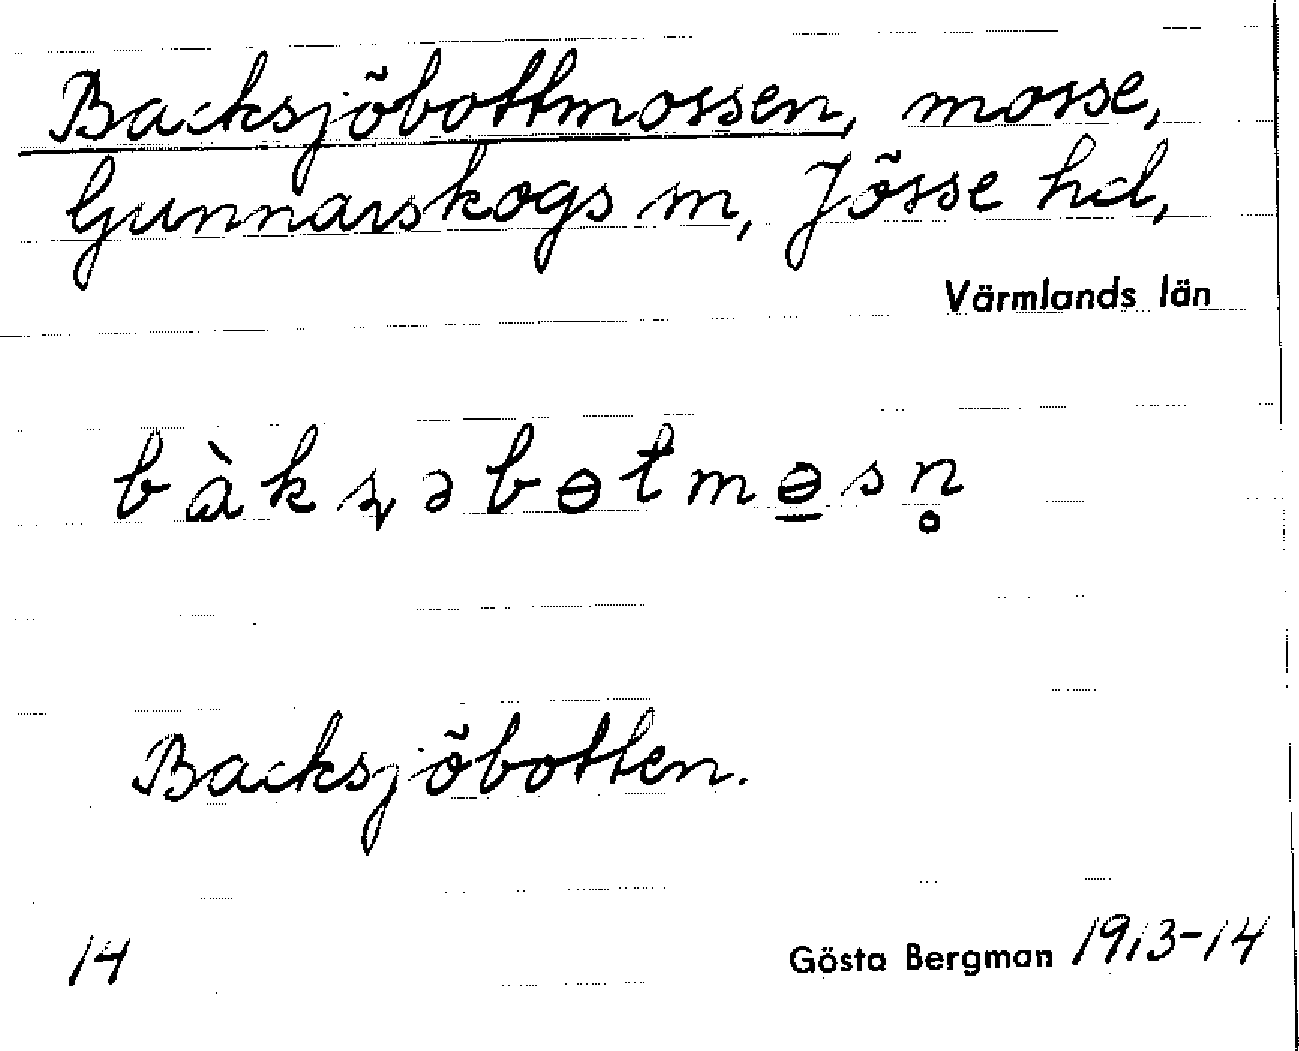 Backsjöbottmossen, mosse,
Gunnarskogs sn, Jösse hd,
Värmlands län
bàkʂəbɵtmɵ̱sn̥
Backsjöbotten.
14
Gösta Bergman 1913-14